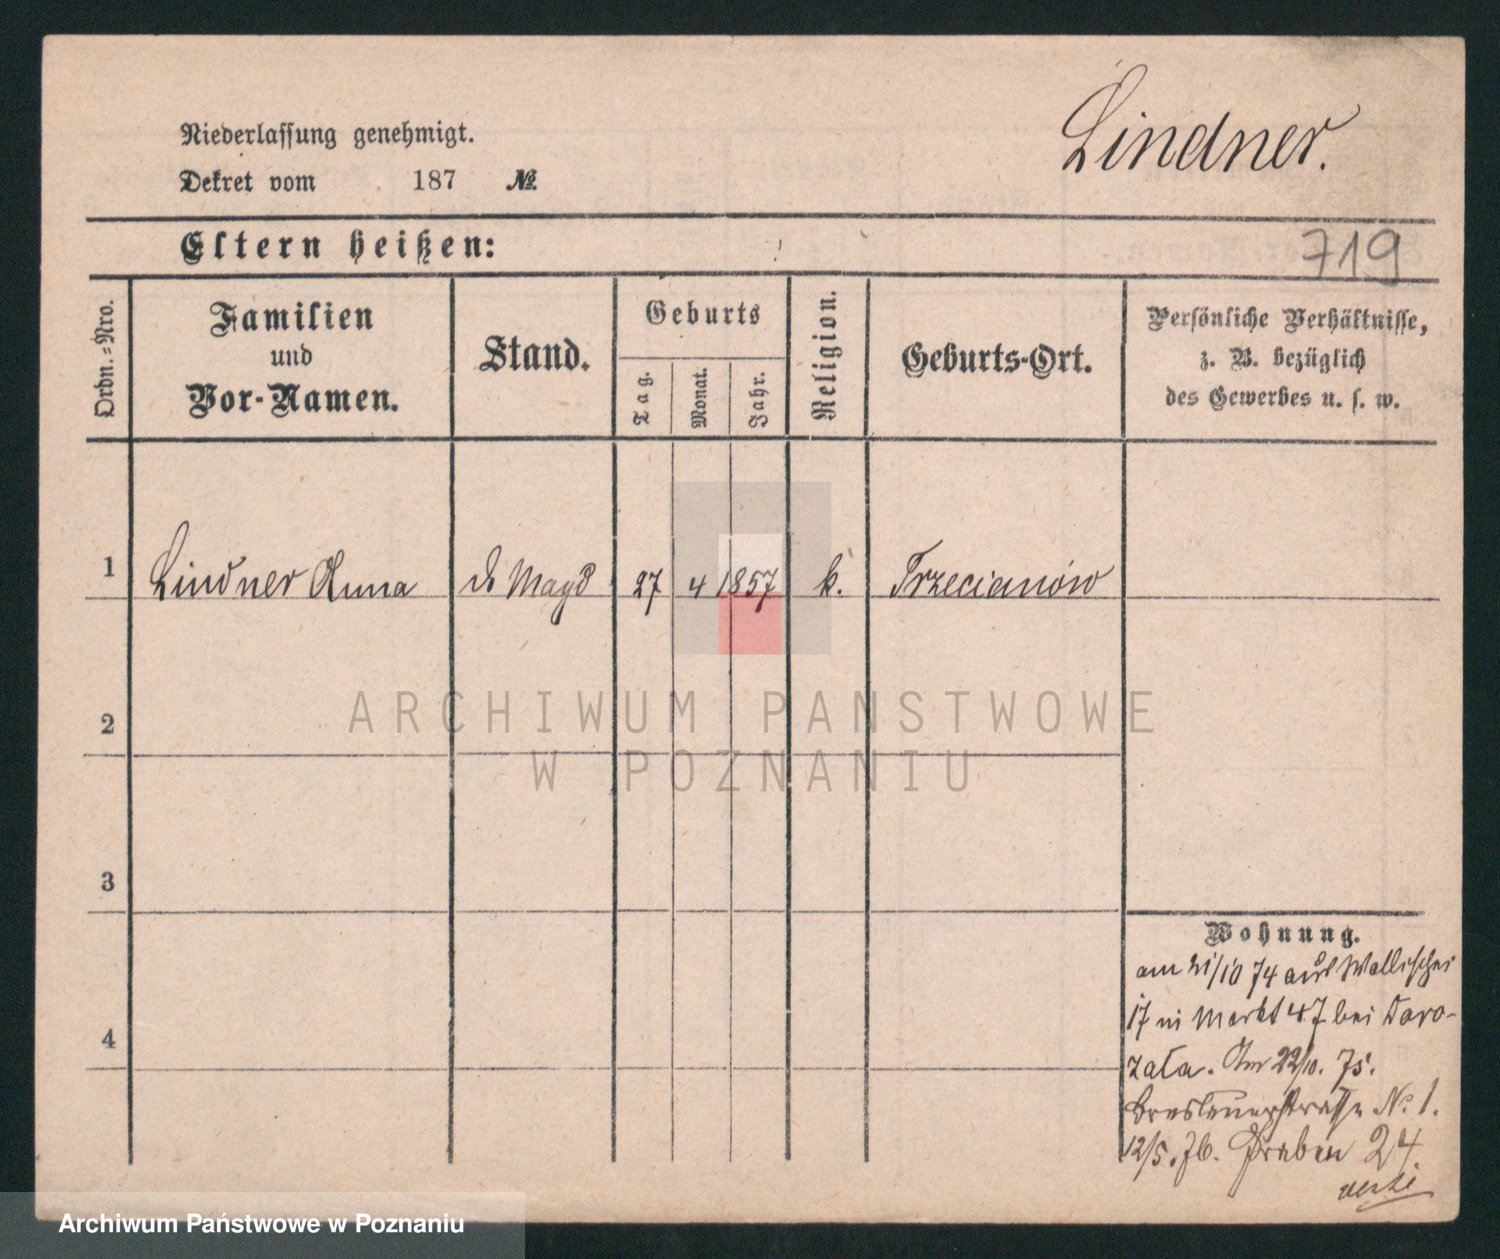 Lindner.
Niederlassung genehmigt.
Dekret vom 187 №
719
Eltern heißen:
Ordn.-Nro.
Familien
und
Vor-Namen.
Stand.
Geburts
Tag.
Monat.
Jahr.
Religion.
Geburts-Ort.
Persönliche Verhältnisse,
z. B. bezüglich
des Gewerbes u. s. w.
1 Lindner Anna Magd 27 4 1857 k. Trzecianów
2
3
4
Wohnung.
am 21/10 74 aus Wallischei
17 in Markt 47 bei Daro-
zala. Am 22/10. 75.
Breslauerstrasse No. 1.
12/5. 76. Graben 24.
ARCHIWUM PAŃSTWOWE
W POZNANIU
Archiwum Państwowe w Poznaniu